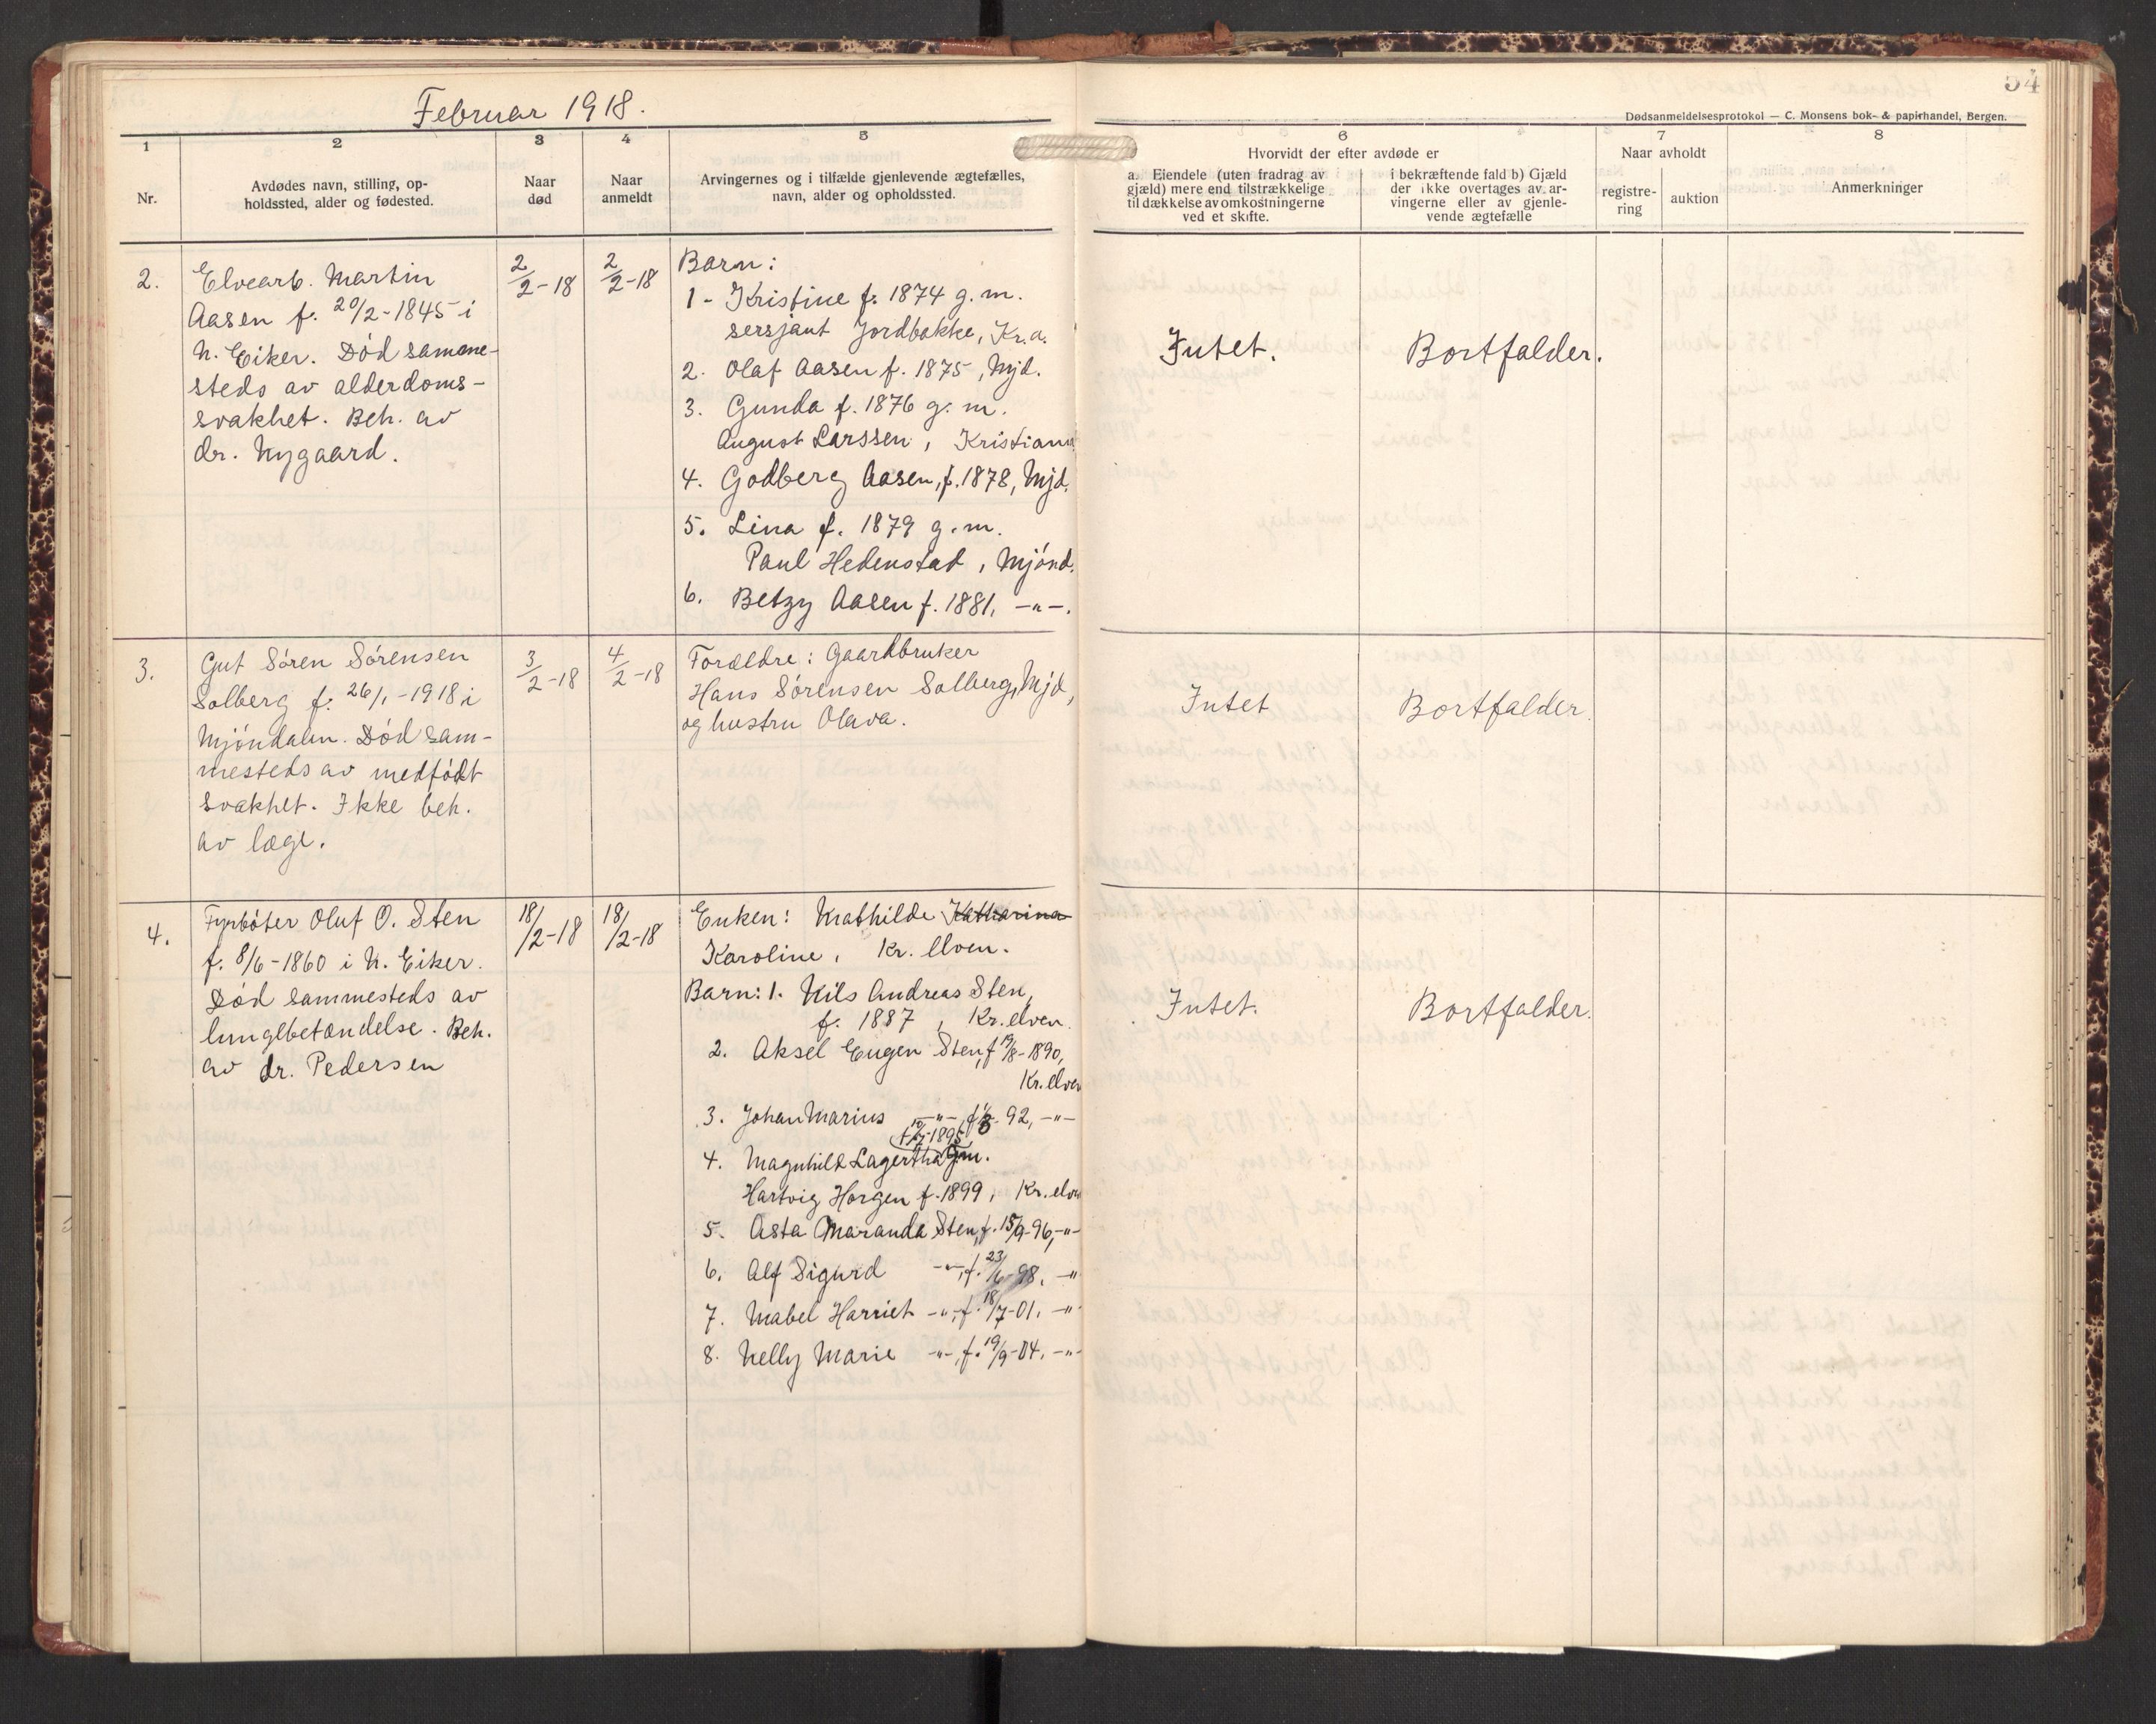 Februar 1918.
54
Dødsanmeldelsesprotokol — C. Monsens bok- & papirhandel, Bergen.
1
Nr.
2
Avdødes navn, stilling, op-
holdssted, alder og fødested.
3
Naar
død
4
Naar
anmeldt
5
Arvingernes og i tilfælde gjenlevende ægtefælles,
navn, alder og opholdssted.
6
Hvorvidt der efter avdøde er
a. Eiendele (uten fradrag av
gjæld) mere end tilstrækkelige
til dækkelse av omkostningerne
ved et skifte.
i bekræftende fald b) Gjæld
der ikke overtages av ar-
vingerne eller av gjenle-
vende ægtefælle
7
Naar avholdt
registre-
ring
auktion
8
Anmerkninger
2.
Elvearb. Martin
Aasen f. 20/2-1845 i
N. Eiker. Død samme-
steds av alderdoms-
svakhet. Beh. av
dr. Nygaard.
2/2-18
2/2-18
Barn:
1- Kristine f. 1874 g. m.
sersjant Jordbakke, Kr.a.
2. Olaf Aasen f. 1875, Mjd.
3. Gunda f. 1876 g. m.
August Larssen, Kristiania
4. Godberg Aasen, f. 1878, Mjd.
5. Lina f. 1879 g. m.
Paul Hedenstad, Mjønd.
6. Betzy Aasen f. 1881. -"-.
Intet.
Bortfalder.
3.
Gut Søren Sørensen
Solberg f. 26/1-1918 i
Mjøndalen. Død sam-
mesteds av medfødt
svakhet. Ikke beh.
av læge.
3/2-18
4/2-18
Forældre: Gaardbruker
Hans Sørensen Solberg, Mjd,
og hustru Olava.
Intet
Bortfalder.
4.
Fyrbøter Oluf O. Sten
f. 8/6-1860 i N. Eiker.
Død sammesteds av
lungebetændelse. Beh.
av dr. Pedersen
18/2-18
18/2-18
Enken: Mathilde Katharina
Karoline, Kr. elven.
Barn: 1. Nils Andreas Sten,
f. 1887, Kr. elven.
2. Aksel Eugen Sten, f 19/8-1890,
Kr. elven
3. Johan Marius -"-, 92, -"-
4. Magnhild Lagertha g.m.
Hartvig Horgen f. 1899, Kr. elven
5. Asta Maranda Sten, f. 15/9-96, -"-
6. Alf Sigurd -"-, f. 23/6-98. -"-
7. Mabel Harriet -"-, f. 18/7-01. -"-
8. Nelly Marie -"-, f. 19/9-04. -"-
Intet.
Bortfalder.